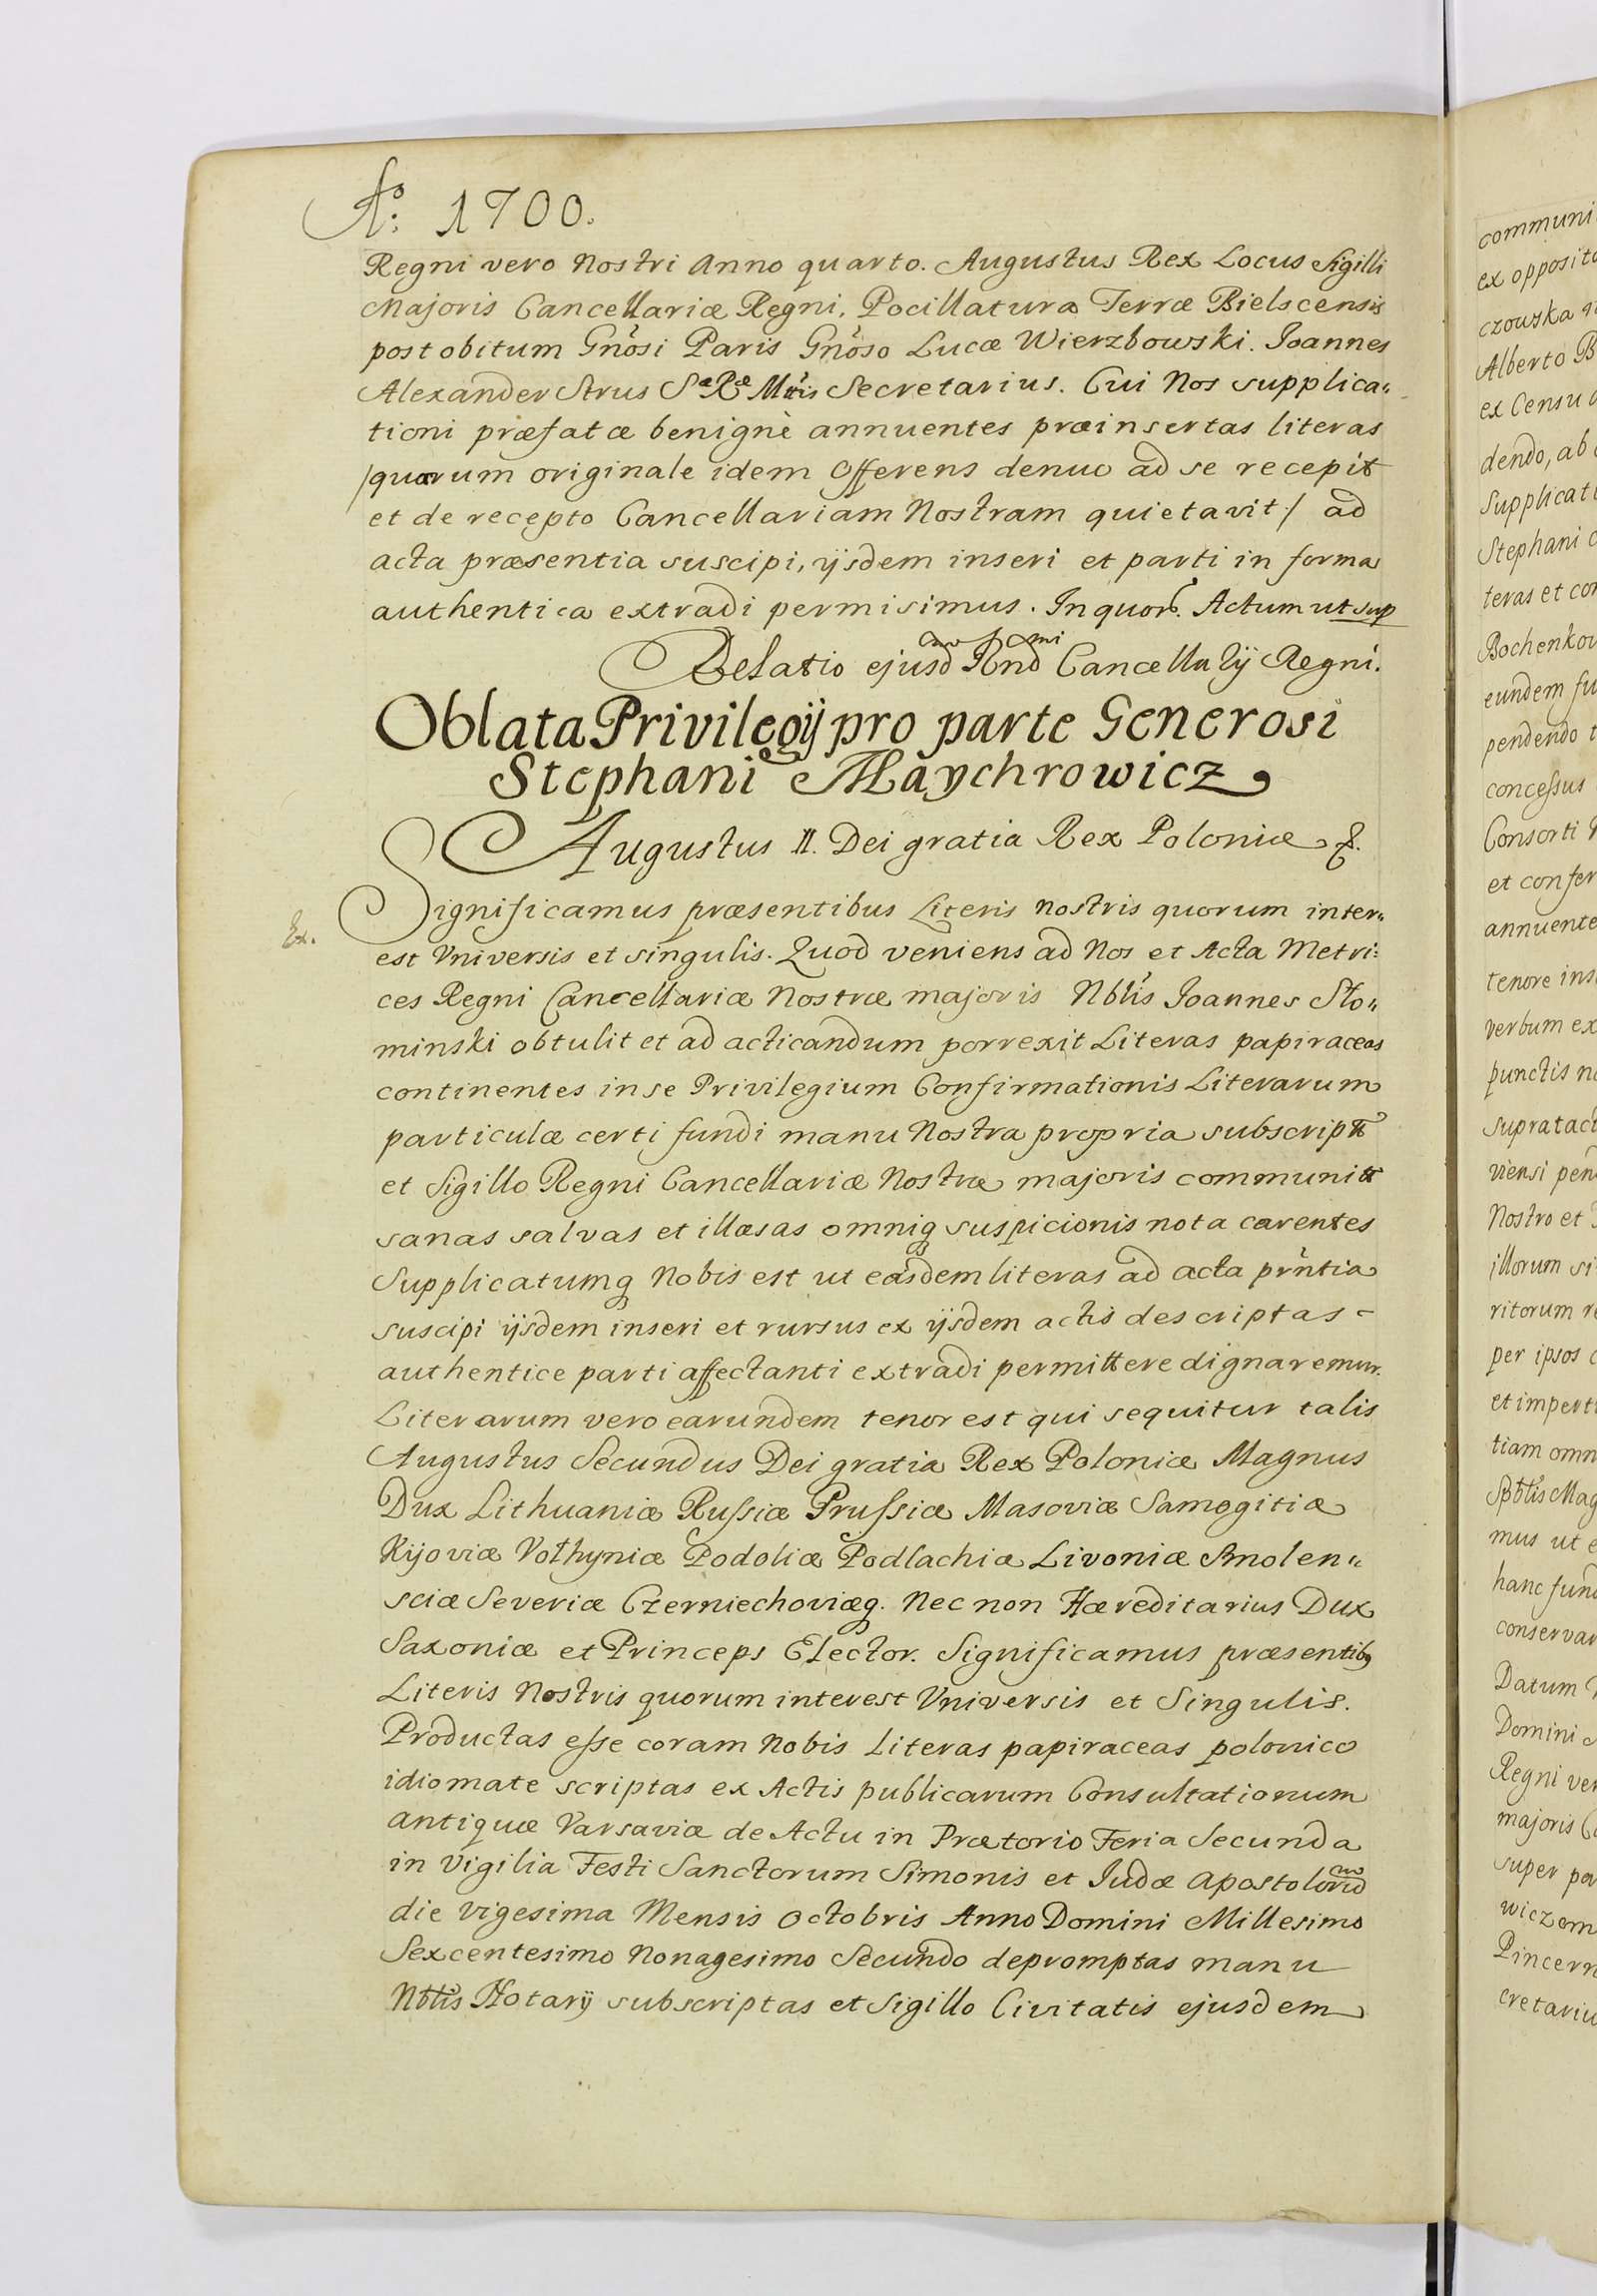 Aº: 1700.
Regni vero Nostri Anno quarto. Augustus Rex Locus Sigilli
Majoris Cancellariæ Regni. Pocillatura Terræ Bielscensis
post obitum Gnosi Paris Gnoso Lucæ Wierzbowski. Joannes
Alexander Strus Sæ Ræ Mttis Secretarius. Cui Nos supplica„
tioni præfatæ benignè annuentes præinsertas literas
/quarum originale idem Offerens denuo ad se recepit
et de recepto Cancellariam Nostram quietavit/ ad
acta præsentia suscipi, ijsdem inseri et parti in forma
authentica extradi permisimus. In quor. Actum ut sup
Relatio ejusd Rndmi Cancellarij Regni.
Oblata Privilegij pro parte Generosi
Stephani Maychrowicz
Augustus II. Dei gratia Rex Poloniæ &.
Ex.
Significamus præsentibus Literis nostris quorum inter„
est Universis et singulis. Quod veniens ad Nos et Acta Metri:
ces Regni Cancellariæ Nostræ majoris Nblis Joannes Sło„
minski obtulit et ad acticandum porrexit Literas papiraceas
continentes in se Privilegium Confirmationis Literarum
particulæ certi fundi manu Nostra propria subscriptt
et Sigillo Regni Cancellariæ Nostræ majoris communitt
sanas salvas et illæsas omniq suspicionis nota carentes
Supplicatumq Nobis est ut easdem literas ad acta prntia
suscipi ijsdem inseri et rursus ex ijsdem actis descriptas
authentice parti affectanti extradi permittere dignaremur.
Literarum vero earundem tenor est qui sequitur talis
Augustus Secundus Dei gratia Rex Poloniæ Magnus
Dux Lithuaniæ Russiæ Prussiæ Masoviæ Samogitiæ
Kijoviæ Volhyniæ Podoliæ Podlachiæ Livoniæ Smolen„
sciæ Severiæ Czerniechoviæq. Nec non Hæreditarius Dux
Saxoniæ et Princeps Elector. Significamus præsentibq
Literis Nostris quorum interest Universis et Singulis.
Productas esse coram Nobis Literas papiraceas polonico
idiomate scriptas ex Actis publicarum Consultationum
antiquæ Varsaviæ de Actu in Prætorio Feria Secunda
in Vigilia Festi Sanctorum Simonis et Judæ Apostolorum
die vigesima Mensis Octobris Anno Domini Millesimo
Sexcentesimo Nonagesimo Secundo depromptas manu
Nblis Notarij subscriptas et Sigillo Civitatis ejusdem
communi
ex opposito
czouska
Alberto B
ex Censu
dendo, ab
Supplicat
Stephani
teras et con
Bochenkow
eundem fu
pendendo t
concessus
Consorti
et confer
annuente
tenore ins
verbum ex
punctis n
supratact
viensi pen
Nostro et
illorum si
ritorum r
per ipsos
et imperti
tiam omn
Spblis Mag
mus ut e
hanc fund
conservar
Datum
Domini
Regni ver
majoris C
super par
wiczom
Pincern
cretariu